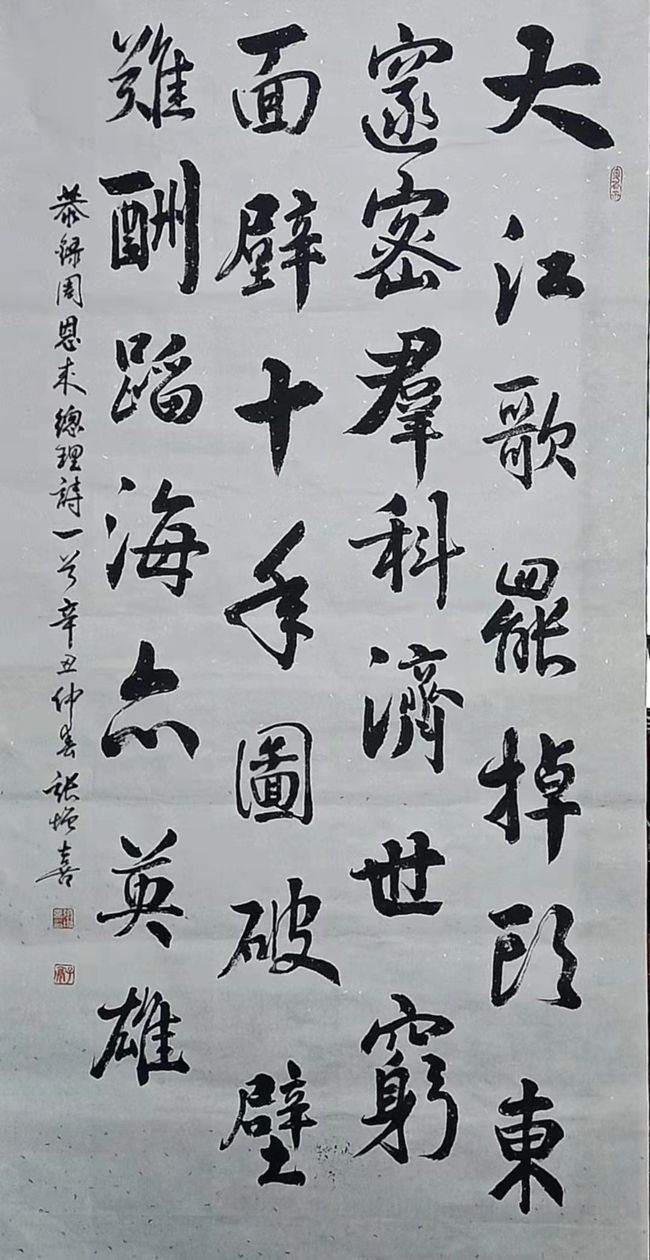 大江歌罷掉頭東
邃密羣科濟世窮
面壁十年圖破壁
難酬蹈海亦英雄
恭録周恩来總理詩一首辛丑仲春張增喜